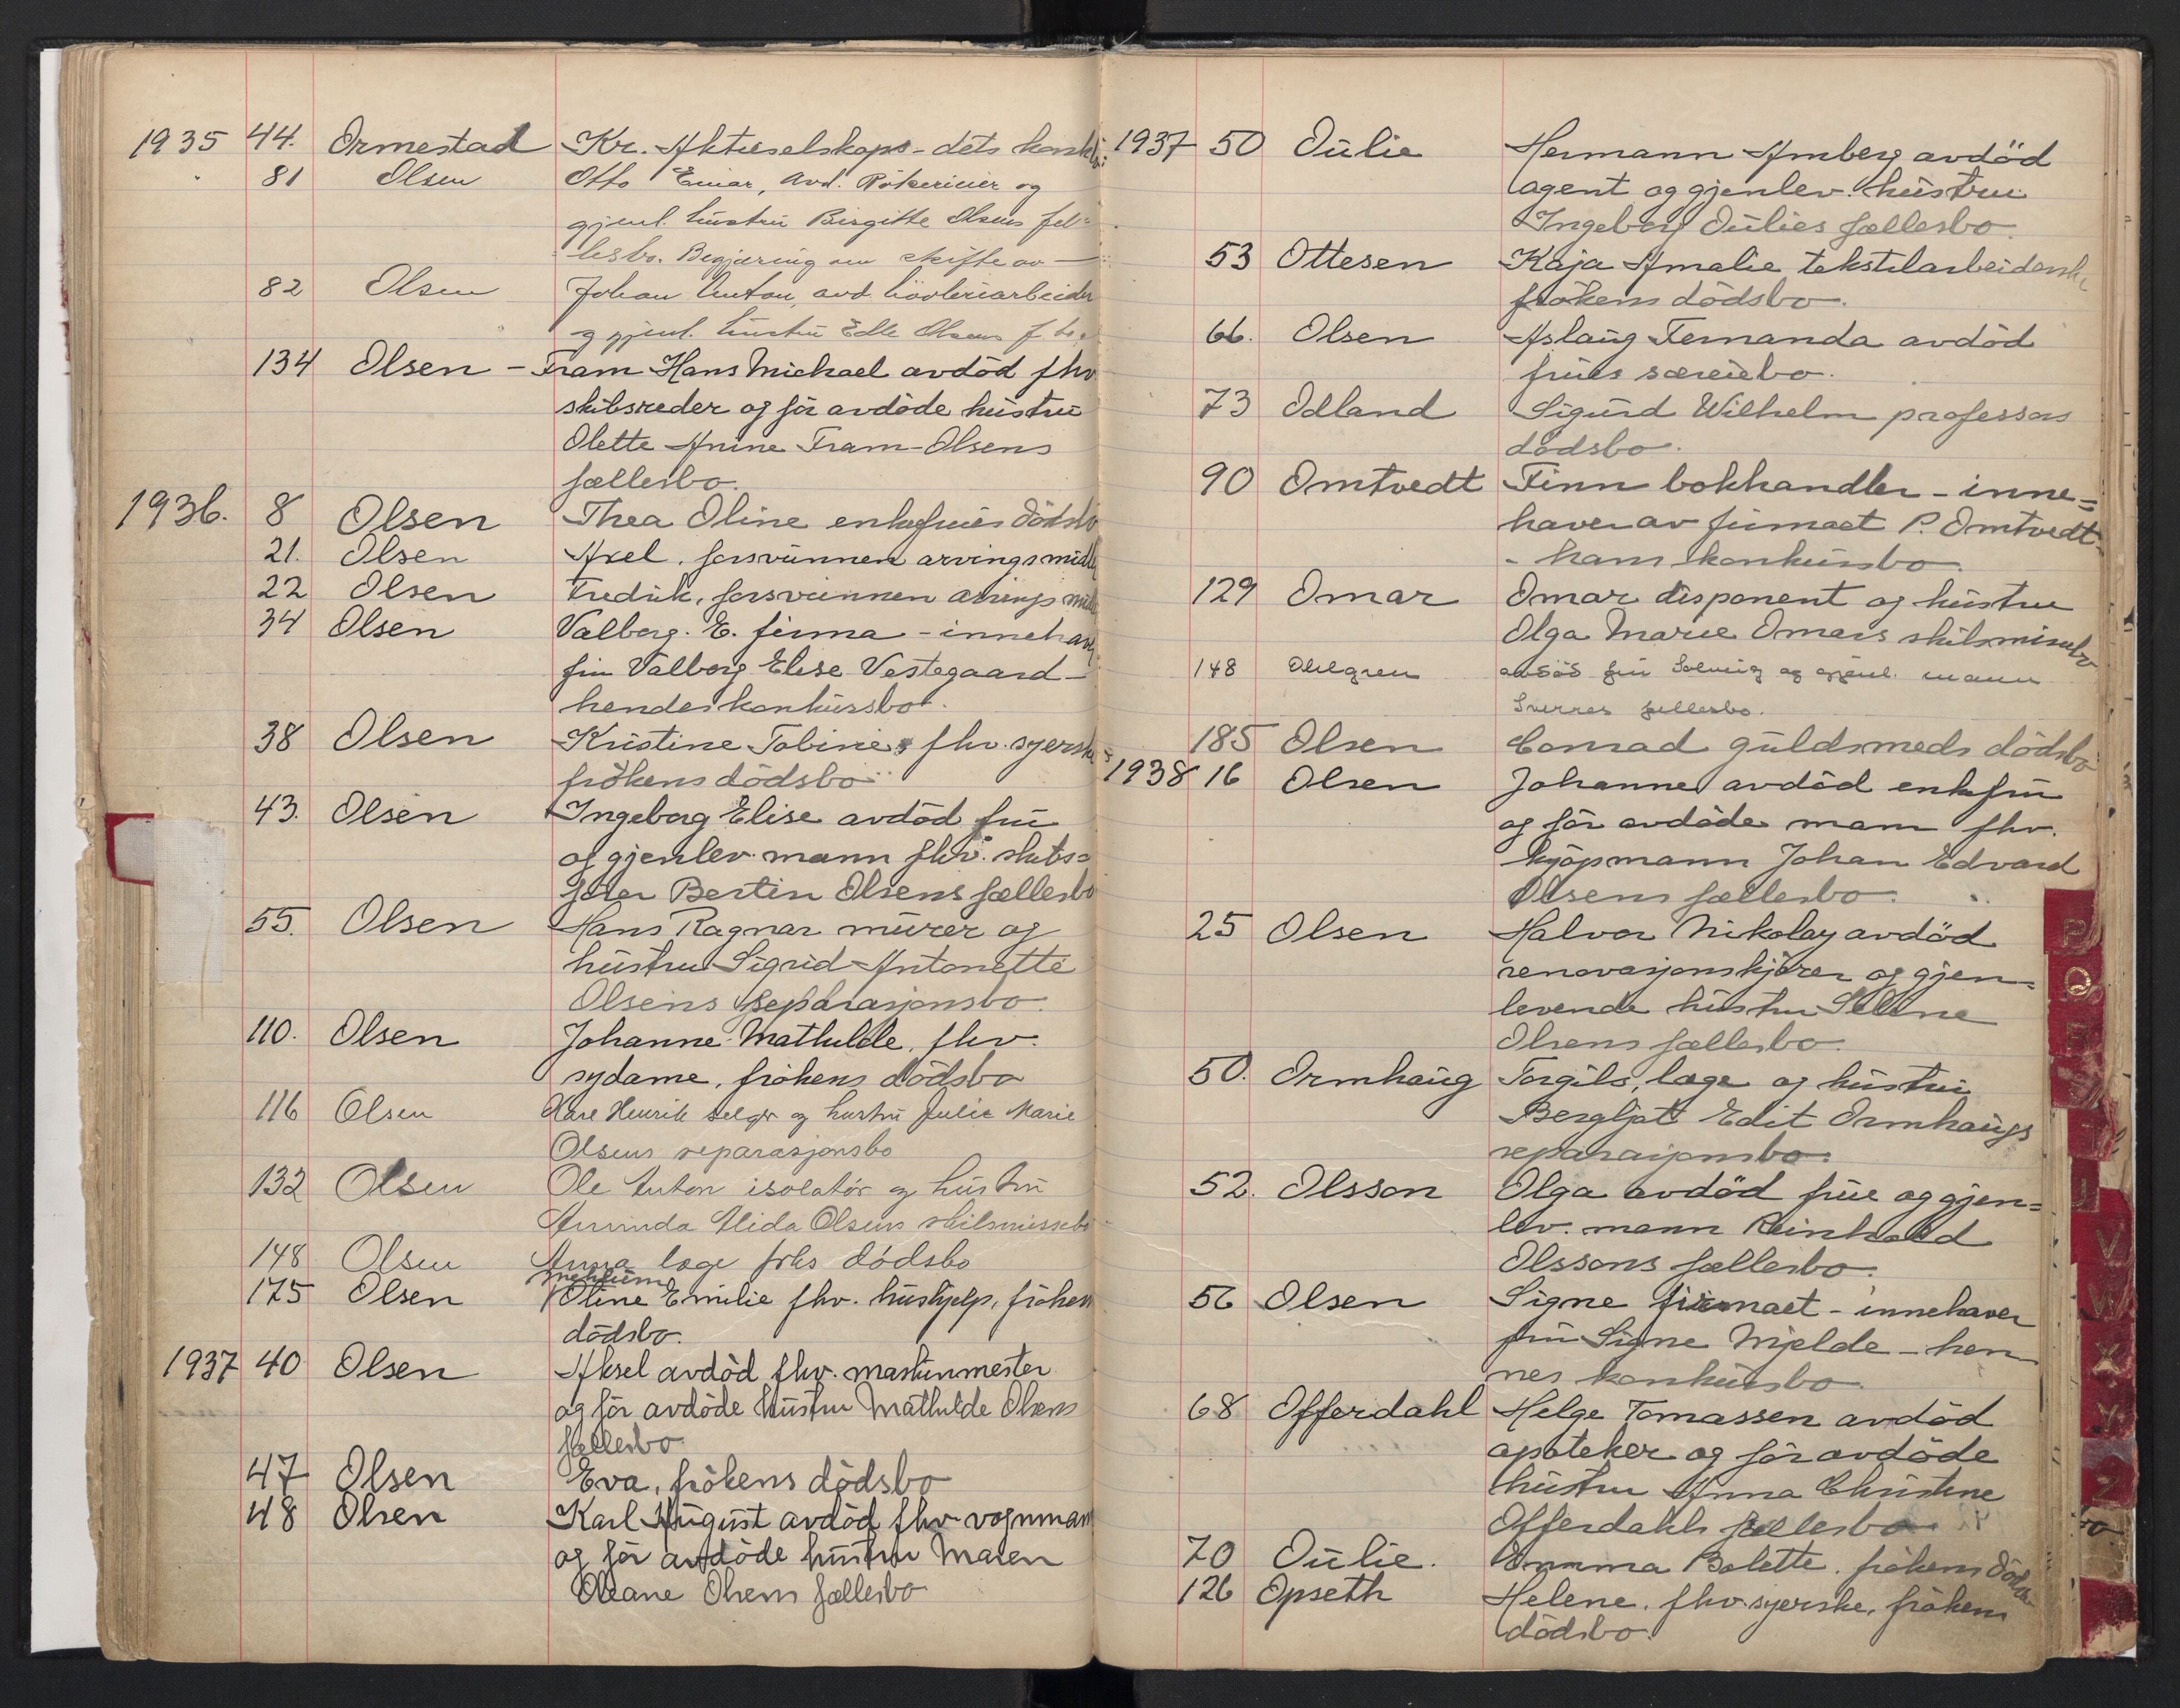 1935 44. Ormestad Kr. Aktieselskaps - dets konk
81 Olsen Otto Einar, avd. Rökerieier og
gjenl. hustru Birgitte Olsens fel-
lesbo. Begjæring om skifte av —
82 Olsen Johan Anton, avd. hövleriarbeider
og gjenl. hustru Edle Olsens f.bo.
134 Olsen - Fram Hans Michael avdöd fhv.
skibsreder og för avdöde hustru
Olette Anine Fram-Olsens
fællesbo.
1936. 8 Olsen Thea Oline enkefrues dödsbo
21. Olsen Axel, forsvunnen arvings midler
22 Olsen Fredrik, forsvunnen arvings midler
34 Olsen Valborg. E. firma - innehaver
fru Valborg Elise Vestegaard -
hendes konkursbo.
38 Olsen Kristine Tobine, fhv. syerske
frökens dödsbo
43. Olsen Ingeborg Elise avdöd frue
og gjenlev. mann fhv. skibs=
förer Bertin Olsens fællesbo
55. Olsen Hans Ragnar murer og
hustru Sigrid Antonette
Olsens separasjonsbo.
110. Olsen Johanne Mathilde, fhv.
sydame, frökens dödsbo
116 Olsen Kare Henrik selger og hustru Julie Marie
Olsens separasjonsbo
132 Olsen Ole Anton isolatör og hustru
Alida Olsens skilsmissebo
148 Olsen Anna læge frks dödsbo
175 Olsen Oline Emilie fhv. hushjelp, fröken
dödsbo.
1937 40 Olsen Aksel avdöd fhv. maskinmester
og för avdöde hustru Mathilde Olsens
fællesbo
47 Olsen Eva, frökens dödsbo
48 Olsen Karl August avdöd fhv. vognmann
og för avdöde hustru Maren
Oleane Olsens fællesbo
1937 50 Oulie Hermann Amberg avdöd
agent og gjenlev. hustru
Ingeborg Oulies fællesbo.
53 Ottesen Kaja Amalie, tekstilarbeiderske
frökens dödsbo.
66. Olsen Aslaug Fernanda avdöd
frues særeiebo.
73 Odland Sigurd Wilhelm professors
dödsbo.
90 Omtvedt Finn bokhandler - inne=
haver av firmaet P. Omtvedt-
- hans konkursbo.
129 Omar Omar disponent og hustru
Olga Marie Omars skilsmissebo
148 Ohlgren avdöd fru Solveig og gjenl. mann
Sverres fellesbo.
185 Olsen Conrad guldsmeds dödsbo
1938 16 Olsen Johanne avdöd enkefru
og för avdöde mann fhv.
kjöpmann Johan Edvard
Olsens fællesbo.
25 Olsen Halvor Nikolay avdöd
renovasjonskjörer og gjen=
levende hustru Selene
Olsens fællesbo.
50. Ormhaug Torgils, læge og hustru
Bergljot Edit Ormhaugs
separasjonsbo.
52. Olsson Olga avdöd frue og gjen=
lev. mann Reinhold
Olssons fællesbo.
56 Olsen Signe firmaet - innehaver
fru Signe Mjelde - hen
nes konkursbo
68 Offerdahl Helge Tomassen avdöd
apoteker og för avdöde
hustru Anna Christine
Offerdahls fællesbo
70 Oulie. Emma Bolette, frökens dödsbo
126 Opseth Helene, fhv. syerske, frökens
dödsbo.
P
Q
V
W
X
Y
Z